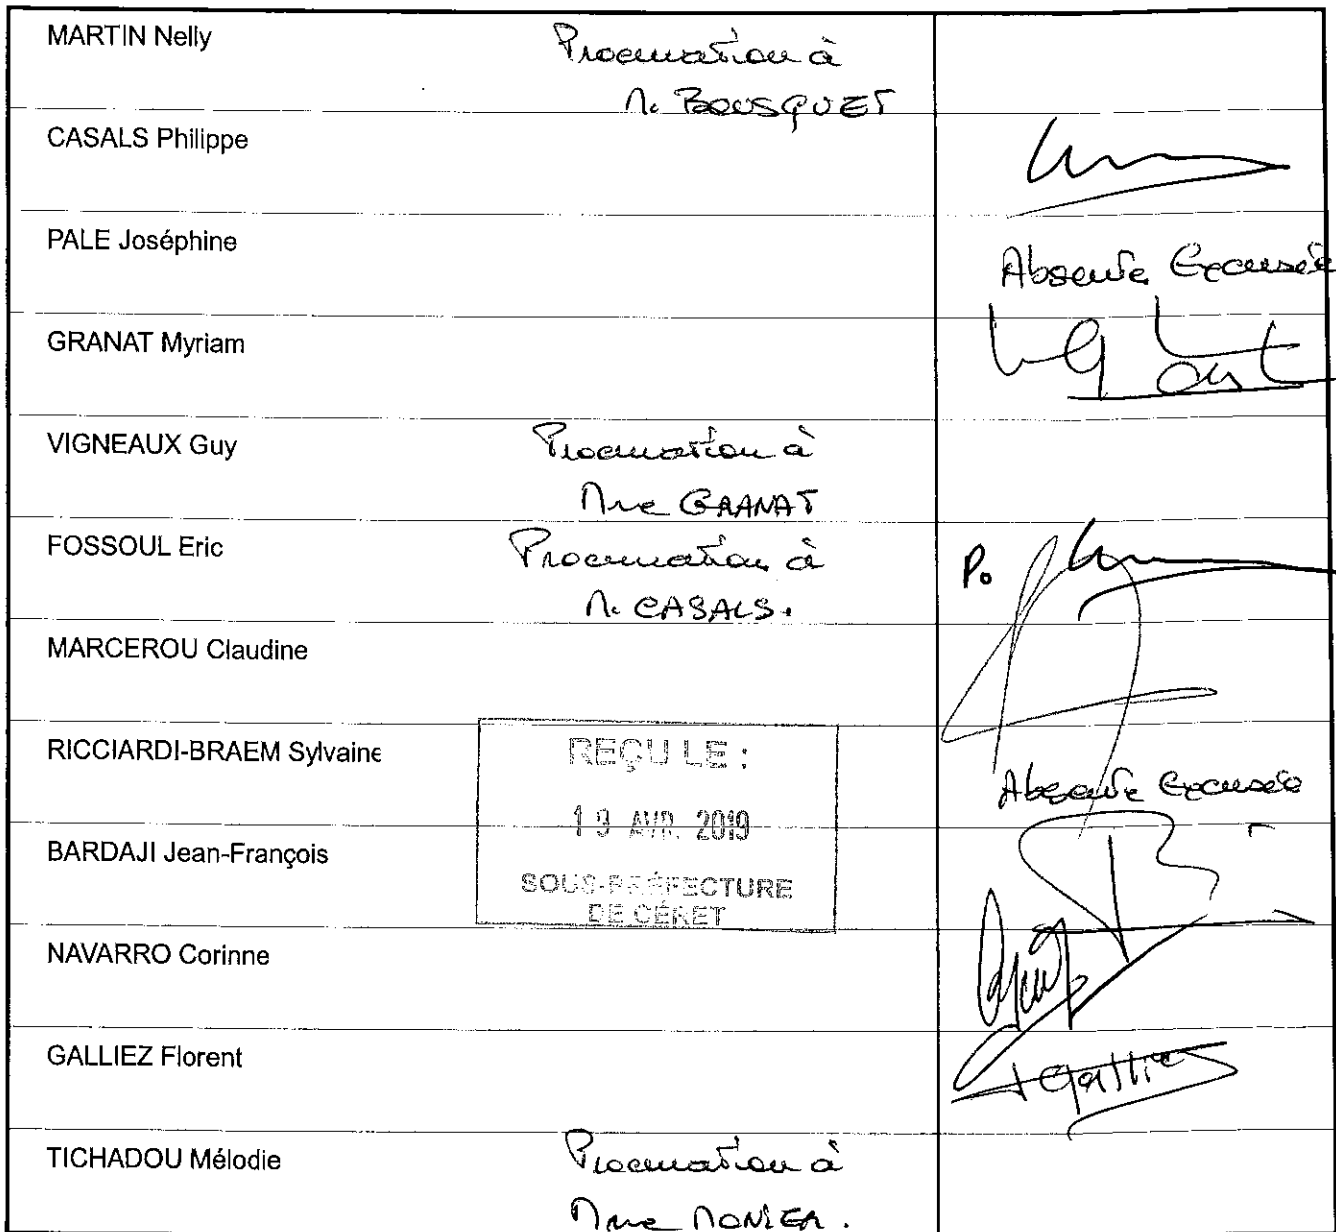 MARTIN Nelly
Procuration à
M. BOUSQUET
CASALS Philippe
PALE Joséphine
Absente Excusée
GRANAT Myriam
VIGNEAUX Guy
Procuration à
Mme GRANAT
FOSSOUL Eric
Procuration à
M. CASALS.
Po
MARCEROU Claudine
RICCIARDI-BRAEM Sylvaine
Absente Excusée
REÇU LE :
19 AVR. 2019
SOUS-PRÉFECTURE
DE CÉRET
BARDAJI Jean-François
NAVARRO Corinne
GALLIEZ Florent
TICHADOU Mélodie
Procuration à
Mme MONIER.